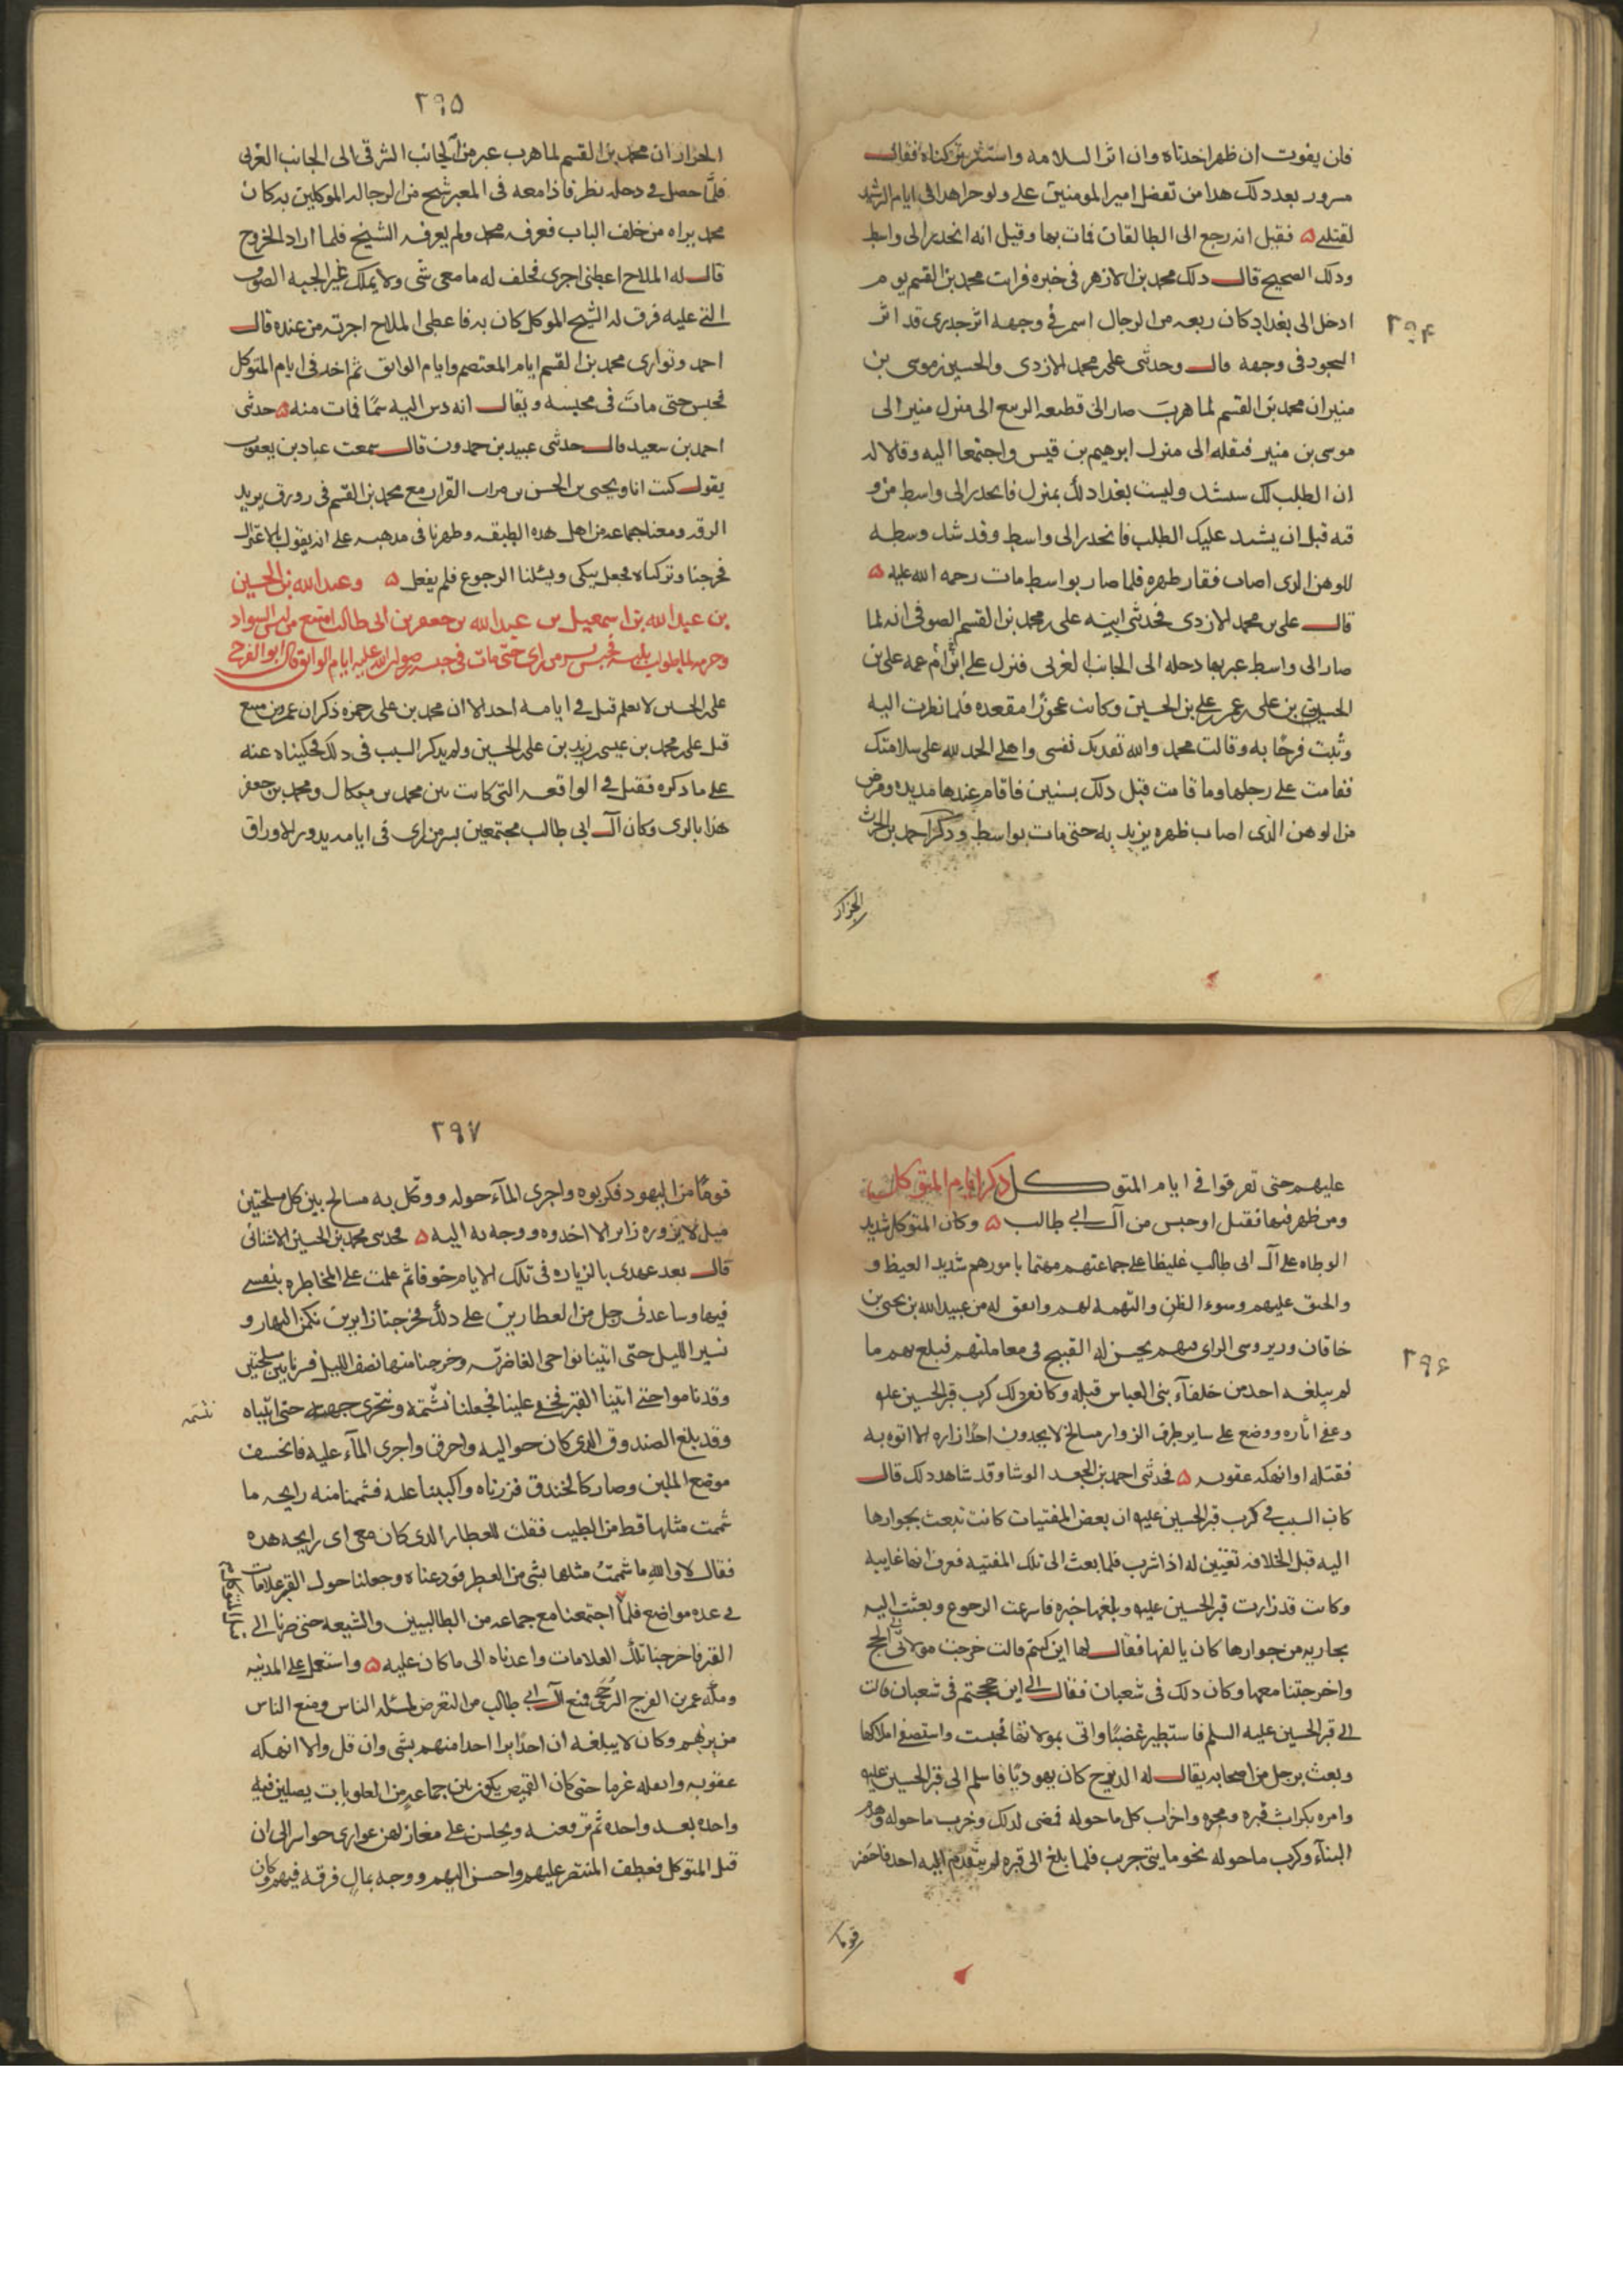 ٢٩٤
فان يفوت ان ظهر اخذناه وان اثر السلامه واستتر تركناه فقال
مسرور بعد ذلك هذا من تفضل امير المومنين على ولو جرا هذا فى ايام الرشيد
لقتلنى ٥ فقيل انه رجع الى الطالقان فمات بها وقيل انه انحدر الى واسط
وذلك الصحيح قال ذلك محمد بن الازهر فى خبره فرايت محمد بن القسم يوم
ادخل الى بغداد كان ربعه من الرجال اسمر فى وجهه اثر جدرى قد اثر
السجود فى وجهه قال وحدثنى على بن محمد الازدى والحسين بن موسى بن
منير ان محمد بن القسم لما هرب صار الى قطيعه الربيع الى منزل منير الى
موسى بن منير فنقله الى منزل ابرهيم بن قيس واجتمعا اليه وقالا له
ان الطلب لك سيشتد وليست بغداد لك بمنزل فانحدر الى واسط من و
قته قبل ان يشتد عليك الطلب فانحدر الى واسط وقد شد وسطه
للوهن الذى اصاب فقار ظهره فلما صار بواسط مات رحمه الله عليه ٥
قال على بن محمد الازدى فحدثنى ابنه على بن محمد بن القسم الصوفى انه لما
صار الى واسط عبر بها دحله الى الجانب الغربى فنزل على ام ابن عمه على بن
الحسن بن على بن عمر بن على بن الحسين وكانت عجوزا مقعده فلما نظرت اليه
وثبت فرحًا به وقالت محمد والله تفديك نفسى واهلى الحمد لله على سلامتك
فقامت على رجلها وما قامت قبل ذلك بسنين فاقام عندها مديده ومرض
من الوهن الذى اصاب ظهره يزيد به حتى مات بواسط وذكر احمد بن الحرث
الخزاز
٢٩٥
الخزاز ان محمد بن القسم لما هرب عبر من الجانب الشرقى الى الجانب الغربى
فلمّا حصل فى دحله نظر فاذا معه فى المعبر شيخ من الرجاله الموكلين به كان
محمد يراه من خلف الباب فعرفه محمد ولم يعرفه الشيخ فلما اراد الخروج
قال له الملاح اعطنى اجرى فحلف له ما معى شى ولا يملك غير الجبه الصوف
التى عليه فرق له الشيخ الموكل كان به فاعطى الملاح اجرته من عنده قال
احمد وتوارى محمد بن القسم ايام المعتصم وايام الواثق ثم اخذ فى ايام المتوكل
فحبس حتى مات فى محبسه ويقال انه دس اليه سمًا فمات منه ٥ حدثنى
احمد بن سعيد قال حدثنى عبيد بن حمدون قال سمعت عباد بن يعقوب
يقول كنت انا ويحيى بن الحسن بن فرات القزاز مع محمد بن القسم فى زورق يريد
الرقه ومعنا جماعه من اهل هذه الطبقه وظهرنا فى مذهبه على انه يقول بالاعتزال
فخرجنا وتركناه فجعل يبكى ويسئلنا الرجوع فلم يفعل ٥ وعبد الله بن الحسين
بن عبد الله بن اسمعيل بن عبد الله بن جعفر بن ابى طالب امتنع من لبس السواد
وخرقه لما طولب بلبسه فحبس بسر من راى حتى مات فى حبسه رضوان الله عليه ايام الواثق قال ابو الفرج
على بن الحسين لا نعلم قتل فى ايامه احدا الا ان محمد بن على بن حمزه ذكر ان عمرو بن منيع
قتل على بن محمد بن عيسى بن زيد بن على بن الحسين ولم يذكر السبب فى ذلك فحكيناه عنه
على ما ذكره فقتل فى الواقعه التى كانت بين محمد بن ميكال ومحمد بن جعفر
هذا بالرى وكان آل ابى طالب مجتمعين بسر من راى فى ايامه يدور الاوراق
٢٩٦
عليهم حتى تفرقوا فى ايام المتوكل ذكر ايام المتوكل
ومن ظهر فيها فقتل او حبس من آل ابى طالب ٥ وكان المتوكل شديد
الوطاه على آل ابى طالب غليظا على جماعتهم مهتما بامورهم شديد الغيظ و
والحنق عليهم وسوء الظن والتهمه لهم واتفق له من عبيد الله بن يحيى بن
خاقان وزيره سى الراى فيهم يحسن له القبيح فى معاملتهم فبلغ بهم ما
لم يبلغه احد من خلفآء بنى العباس قبله وكان من ذلك كرب قبر الحسين عليه
وعفى اثاره ووضع على ساير طرق الزوار مسالح لا يجدون احدا زاره الا اتوه به
فقتله او انهكه عقوبه ٥ فحدثنى احمد بن الجعد الوشا وقد شاهد ذلك قال
كان السبب فى كرب قبر الحسين عليه ان بعض المغنيات كانت تبعث بجوارها
اليه قبل الخلافه تغنين له اذا شرب فلما بعث الى تلك المغنيه فعرف انها غايبه
وكانت قد زارت قبر الحسين عليه وبلغها خبره فاسرعت الرجوع وبعثت اليه
بجاريه من جوارها كان يالفها فقال لها اين كنتم قالت خرجت مولاتى الى الحج
واخرجتنا معها وكان ذلك فى شعبان فقال الى اين حججتم فى شعبان قالت
الى قبر الحسين عليه السلم فاستطير غضبًا واتى بمولاتها فحبست واستصفى املاكها
وبعث برجل من اصحابه يقال له الديزج كان يهوديًا فاسلم الى قبر الحسين عليه
وامره بكراب قبره ومحوه واخراب كل ما حوله فمضى لذلك وخرب ما حوله وهدم
البنآء وكرب ما حوله نحو مايتى جريب فلما بلغ الى قبره لم يتقدم اليه احد فاحضر
قوما
٢٩٧
قومًا من اليهود فكربوه واجرى المآء حوله ووكل به مسالح بين كل مسلحتين
ميل لا يزوره زائر الا اخذوه ووجه به اليه ٥ فحدثنى محمد بن الحسين الاشنانى
قال بعد عهدى بالزياره فى تلك الايام خوفا ثم عملت على المخاطره بنفسى
فيها وساعدنى رجل من العطارين على ذلك فخرجنا زايرين نكمن النهار و
نسير الليل حتى اتينا نواحى الغاضريّه وخرجنا منها نصف الليل فسرنا بين مسلحتين
وقد ناموا حتى اتينا القبر فخفى علينا فجعلنا نشتمه ونتحرى جهته حتى اتيناه
نشتمه
وقد بلغ الصندوق الذى كان حواليه واحرق واجرى المآء عليه فانخسف
موضع اللبن وصار كالخندق فزرناه واكببنا عليه فشممنا منه رايحه ما
شممت مثلها قط من الطيب فقلت للعطار الذى كان معى اى رايحه هذه
فقال لا والله ما شممتُ مثلها بشى من العطر فودعناه وجعلنا حول القبر علامات
فى عده مواضع فلمّا اجتمعنا مع جماعه من الطالبيين والشيعه حتى صرنا الى
قتل المتوكل
القبر فاخرجنا تلك العلامات واعدناه الى ما كان عليه ٥ واستعمل على المدينه
ومكه عمر بن الفرج الرخجى فمنع آل ابى طالب من التعرض لمسئله الناس ومنع الناس
من برهم وكان لا يبلغه ان احدًا برا احدا منهم بشى وان قل والا انهكه
عقوبه واثقله غرما حتى كان القميص يكون بين جماعه من العلويات يصلين فيه
واحده بعد واحده ثم ترقعنه ويجلسن على مغازلهن عوارى حواسر الى ان
قتل المتوكل فعطف المنتصر عليهم واحسن اليهم ووجه بمال فرقه فيهم وكان